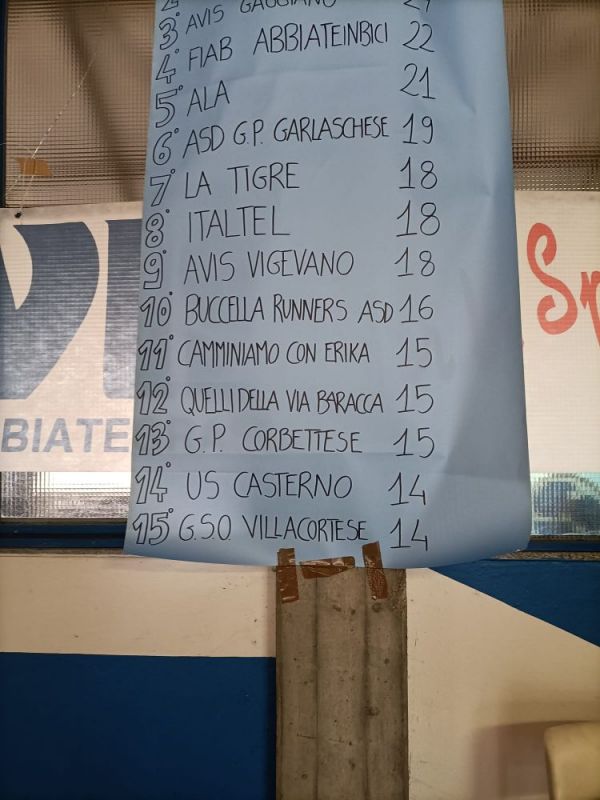 3° AVIS GAGGIANO
4° FIAB ABBIATEINBICI 22
5° ALA 21
6° ASD G.P. GARLASCHESE 19
7° LA TIGRE 18
8° ITALTEL 18
9° AVIS VIGEVANO 18
10° BUCCELLA RUNNERS ASD 16
11° CAMMINIAMO CON ERIKA 15
12° QUELLI DELLA VIA BARACCA 15
13° G.P. CORBETTESE 15
14° US CASTERNO 14
15° G.S.O. VILLACORTESE 14
BIATE
Sp